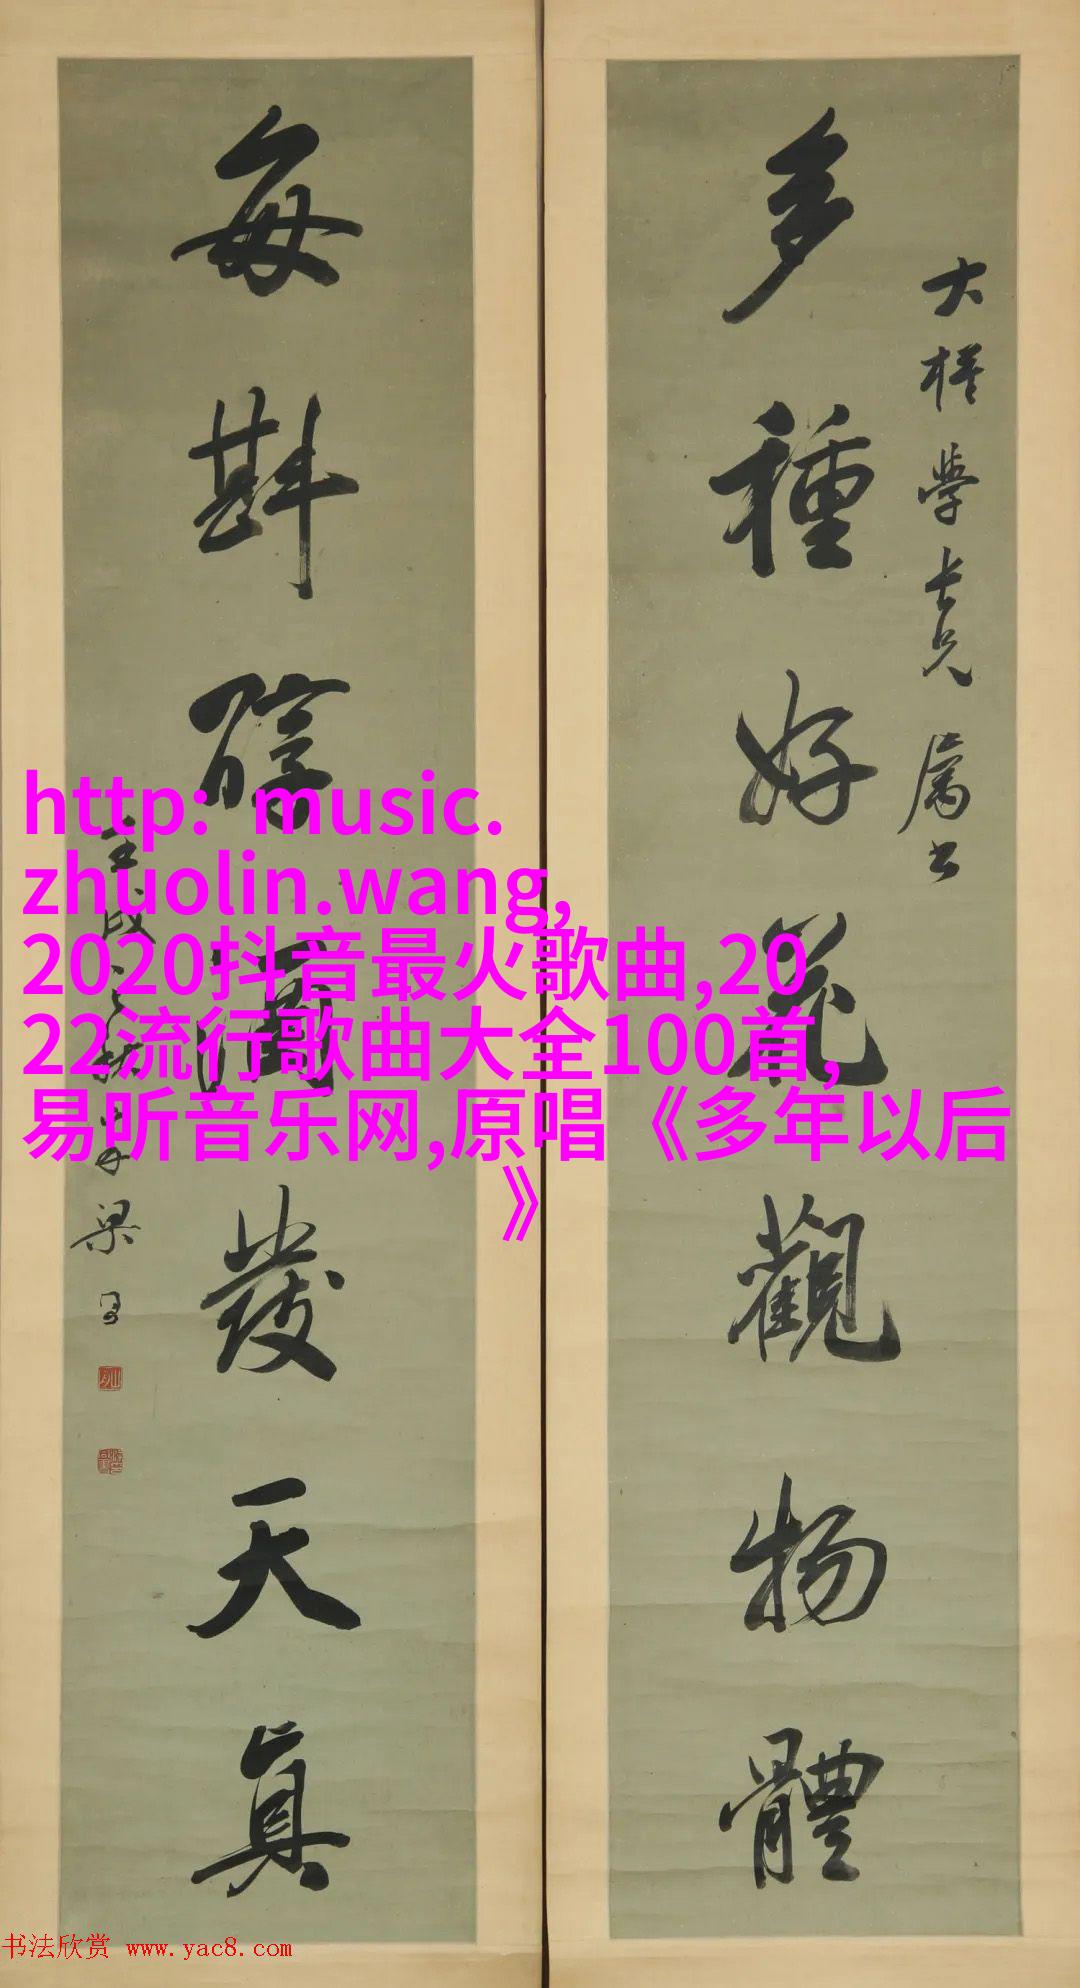 多種好花觀物體
大楳學長兄屬書
每斟醇酒發天真
http: music.
zhuolin.wang,
2020抖音最火歌曲,20
22流行歌曲大全100首,
易昕音乐网,原唱《多年以后
》
书法欣赏 www.yac8.com